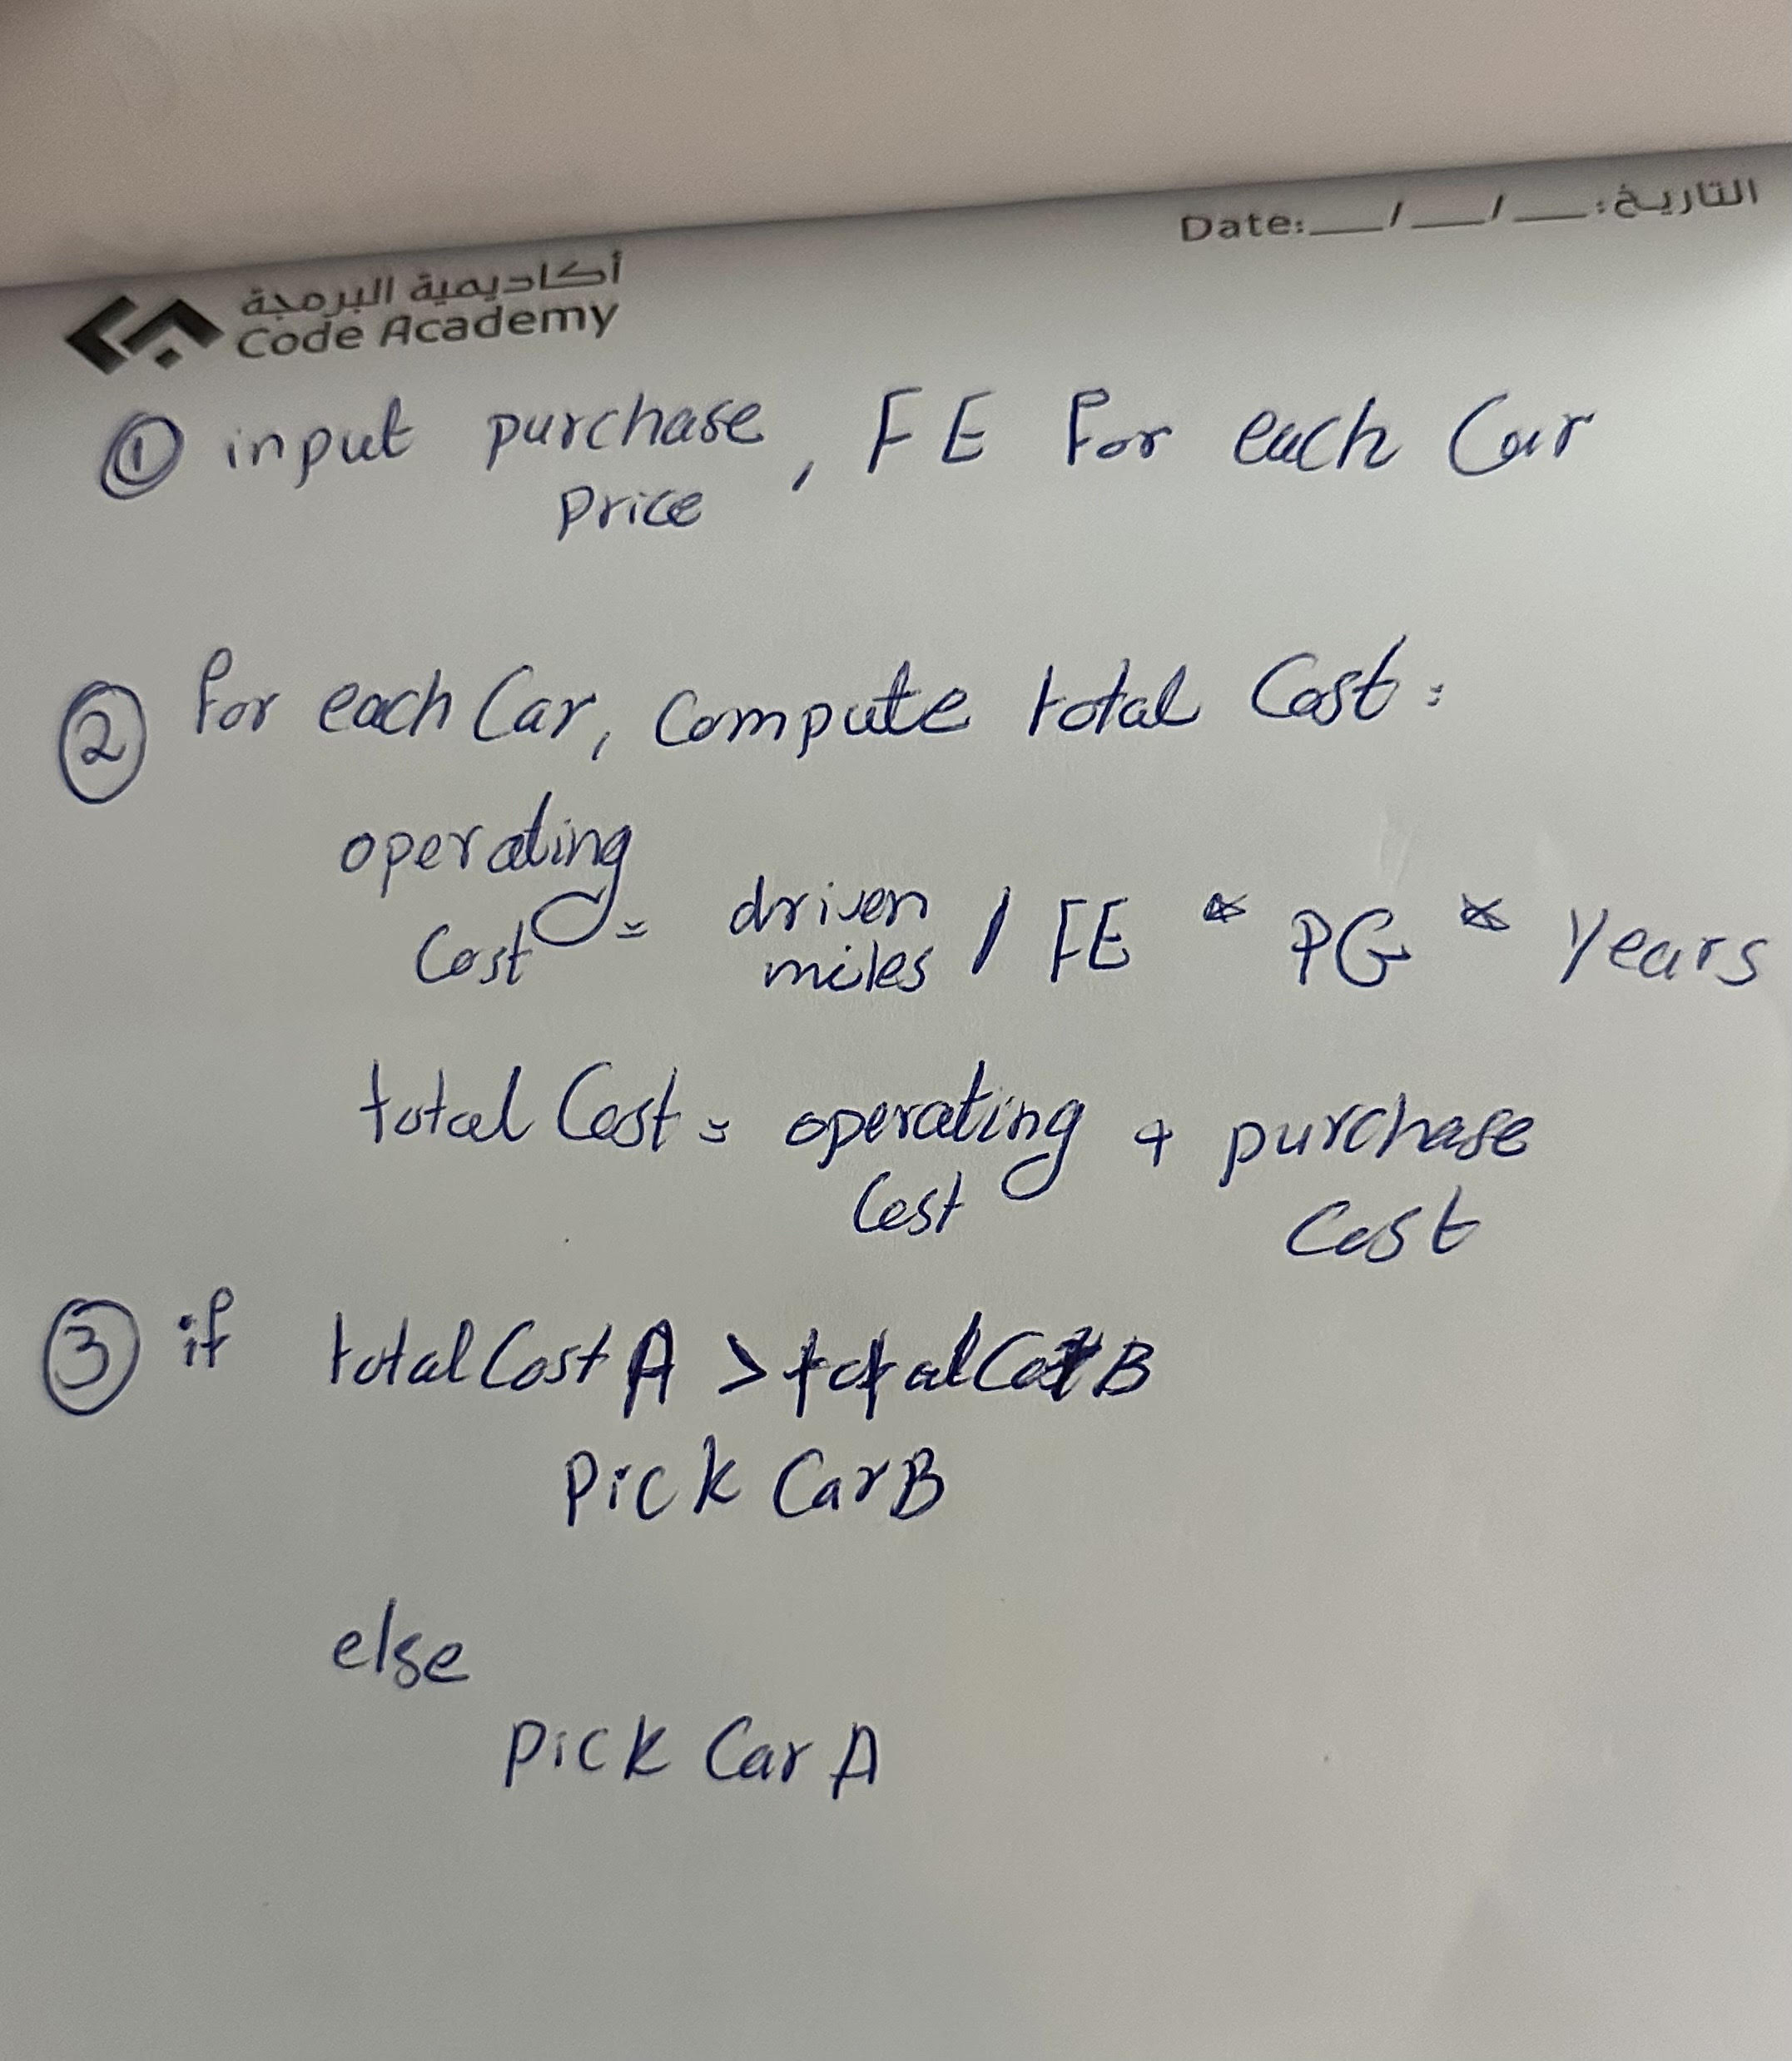 Date:__/__/__:التاريخ
أكاديمية البرمجة
Code Academy
① input purchase price, FE for each Car
② for each Car, Compute total Cost:
operating Cost = driven miles / FE * PG * Years
total Cost = operating Cost + purchase Cost
③ if total Cost A > total Cost B
Pick Car B
else
Pick Car A